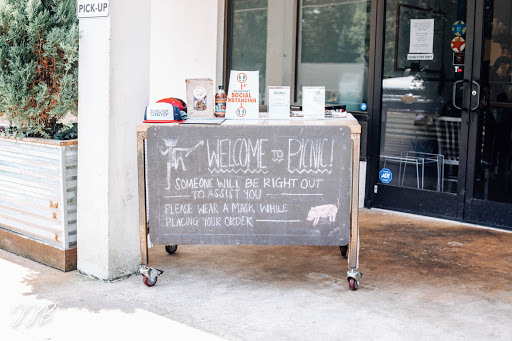 PICK-UP
SOCIAL
DISTANCING
WELCOME TO PICNIC!
SOMEONE WILL BE RIGHT OUT
TO ASSIST YOU
PLEASE WEAR A MASK WHILE
PLACING YOUR ORDER
ADT
JJB